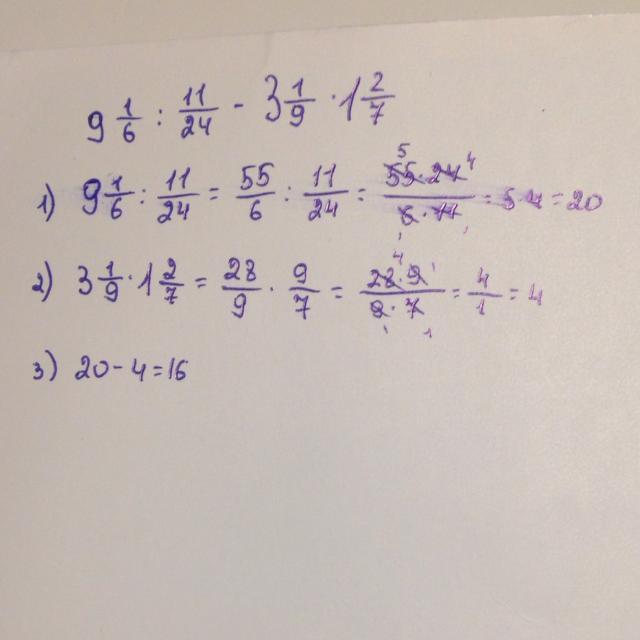 9 1/6 : 11/24 - 3 1/9 · 1 2/7
1) 9 1/6 : 11/24 = 55/6 : 11/24 = 55·24/6·11 = 5·4 = 20
2) 3 1/9 · 1 2/7 = 28/9 · 9/7 = 28·9/9·7 = 4/1 = 4
3) 20 - 4 = 16